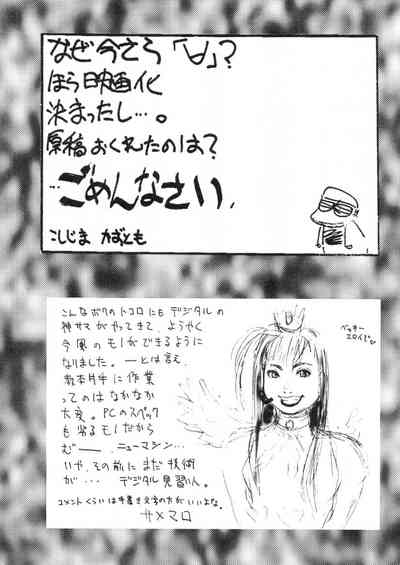 なぜ今さら「∀」？
ほら映画化
決まったし…。
原稿おくれたのは？
…ごめんなさい。
こじま かずとも
こんなボクのトコロにも デジタルの
神サマがやってきて、ようやく
今風のモノができるように
なりました。ーとは言え、
教本片手に作業
ってのはなかなか
大変。PCのスペック
も劣るモノだから
むー――。ニューマシン…
いや、その前にまだ技術
が… デジタル見習い人。
コメントくらいは手書き文字の方がいいよな。
サメマロ
エロイぞ